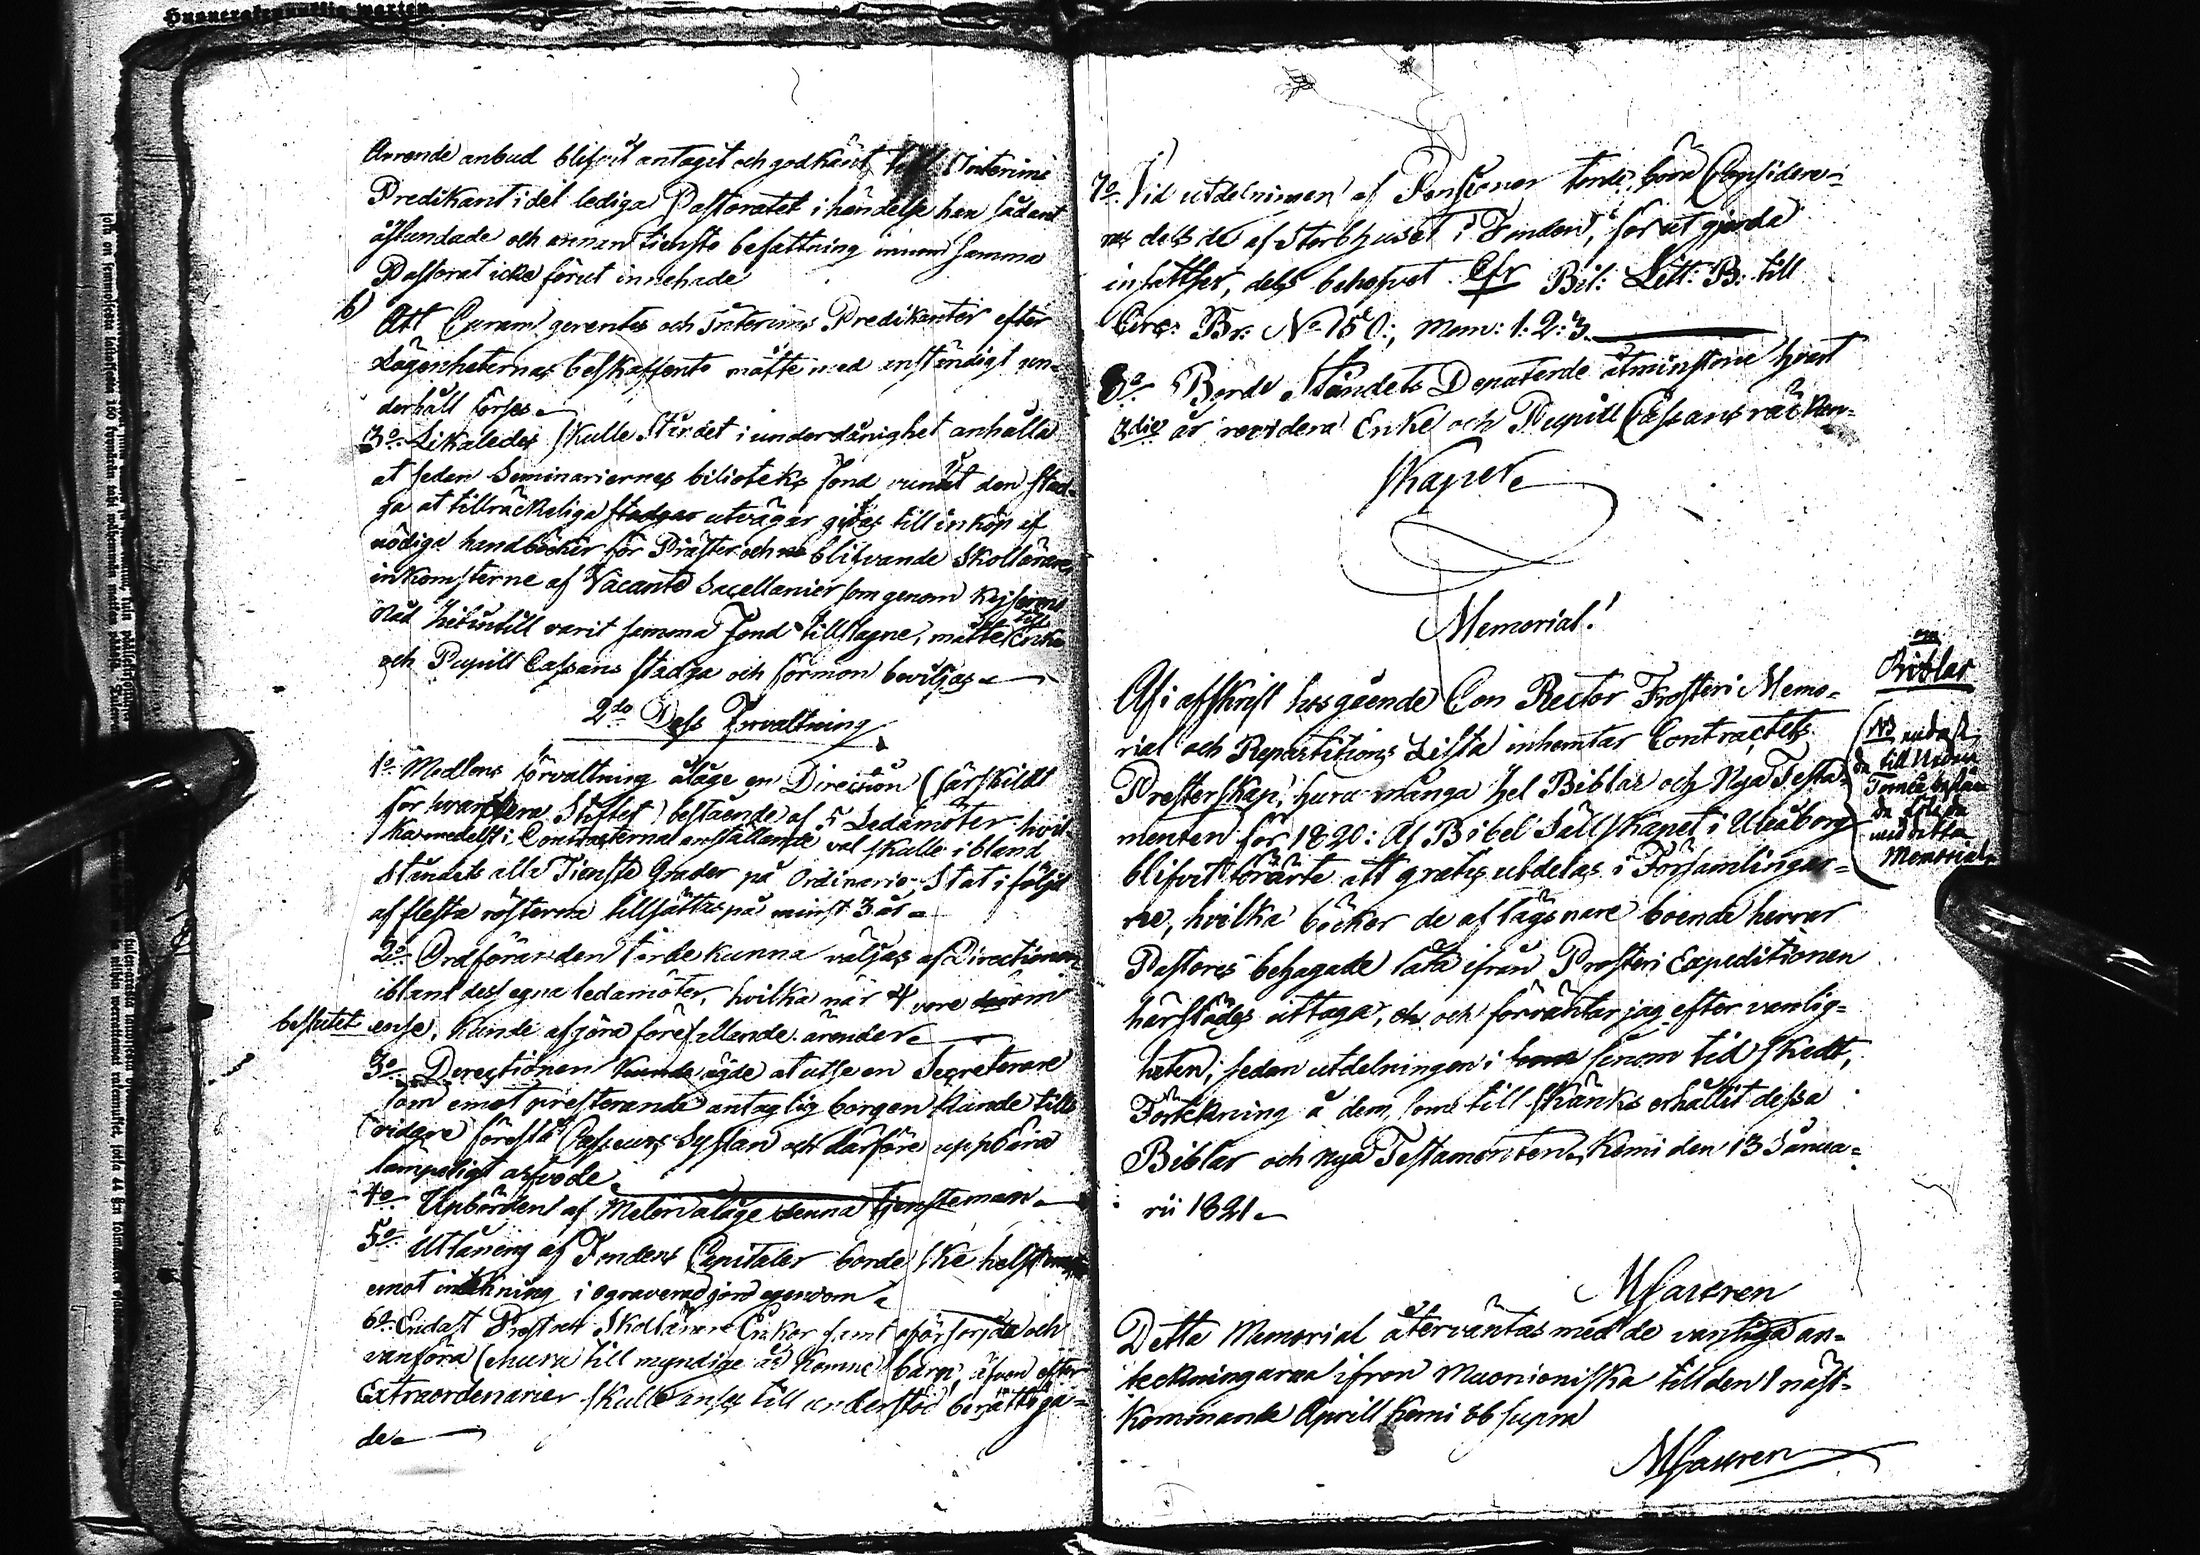 Arrende anbud blifvit antaget och godkänt, till Interims
Predikant i det lediga Pastoratet i händelse han sådant
åstundade och annan tienste befattning innom samma
Pastorat icke förut innehade
b) Att Curam gerentes och Interims Predikanter efter
Lägenheternas beskaffenhet måtte med anständigt un-
derhåll förses
3o Likaledes skulle Ståndet i underdånighet anhålla
at sedan Seminariernes biliotheks fond vunnit den stad-
ga at tillräckeliga stadgar utvägar gifves till inköp af
nödiga handböcker för Präster och blifvande Skollärare,
inkomsterne af Vacante Sacellanier som genom Kejserens
Nåd härintill varit samma Fond tillslagne, måtte till Enke
och Pupill Cassans stadga och förmon beviljas
2do Dess Förvaltning
1o Medlens förvaltning ålåge en Direction (särskildt
för hvartdera Stiftet) bestående af 5 Ledamöter hvil-
ka medelst i Contracterna anstallande val skulle ibland
Ståndets alla Tienste Grader på Ordinarie Stat i följd
af flesta rösterna tillsättas på minst 3 år
2o Ordföranden torde kunna väljas af Directionen
ibland dess egna ledamöter, hvilka när 4 vore derom
beslutet ense, kunde afgöra förefallande ärender
3o Directionen kunde ägde at utse en Secreterare
som emot presterande antaglig borgen kunde till-
vidare förestå Casseurs Sysslan och därföre uppbära
lämpeligt arfvode
4o Upbörden af Medlen ålåge denna tjensteman
5o Utlåning af Fondens Capitaler borde ske helst
emot inteckning i ograverad jord egendom
6o Endast Prest och Skollärare Enkor samt oförsorjda och
vanföra (ehuru till myndige år komne) barn, äfven efter
Extraordinarier skulle anses till understöd berättiga-
de
7o Vid utdelningen af Pensioner torde böra Considere-
ras dels de af Sterbhuset i Fonden, förut gjorda
insattser, dels behofvet Cfr Bil: Litt: B: till
Circ: Br: No 150:, Mom: 1: 2: 3.
8o Borde Ståndets Deputerde åtminstone hvart
3die år revidera Enke och Pupill Cassans räken-
skaper
Memorial!
om
Biblar
Af i afskrift hosgående Con Rector Frosteri Memo-
rial och Repartitions Lista inhemtar Contractets
Presterskap, huru många hel Biblar och Nya Testa-
menten för 1820: Af Bibel Sällskapet i Uleåborg
blifvit förärte att gratis utdelas i Församlingar-
ne, hvilka böcker de aflägsnare boende herrar
Pastores behagade låta ifrån Prosteri Expeditionen
härstädes uttaga, och förväntar jag efter vanlig-
heten, sedan utdelningen i sinom tid skedt,
Förtekning å dem som till skänks erhållit dessa
Biblar och nya Testamenten. Kemi den 13 Janua-
rii 1821
(NB endast
till Neder
Torneå
med detta
Memorial
M Cajaren
Dette Memorial återväntas med de vanliga an-
teckningarna ifron Muonioniska till den 1 näst-
kommande Aprill Kemi ut supra